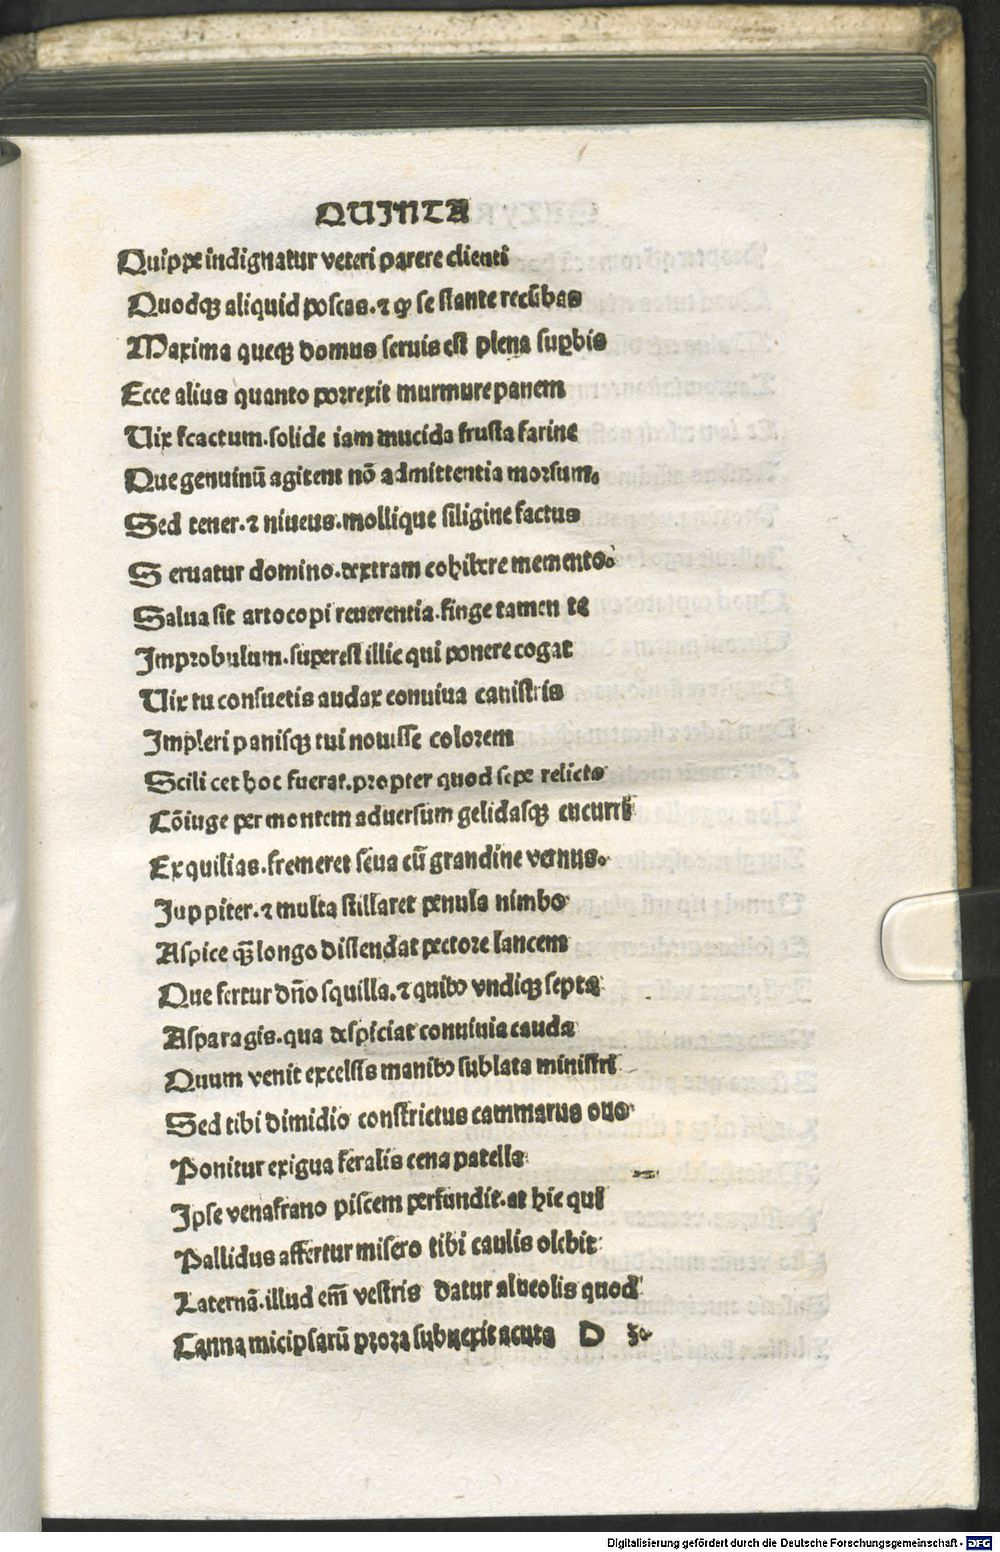 QUINTA
Quippe indignatur veteri parere clienti
Quodqꝫ aliquid poscas. ⁊ ꝙ se stante recūbas
Maxima queqꝫ domus seruis est plena suꝑbis
Ecce alius quanto porrexit murmure panem
Uix fcactum. solide iam mucida frusta farine
Que genuinū agitent nō admittentia morsum.
Sed tener. ⁊ niueus. mollique siligine factus
S eruatur domino. dextram cohibere memento.
Salua sit artocopi reuerentia. finge tamen te
Improbulum. superest illic qui ponere cogat
Uix tu consuetis audax conuiua canistris
Impleri panisqꝫ tui nouisse colorem
Scili cet hoc fuerat. propter quod sepe relicta
Cōiuge per montem aduersum gelidasqꝫ cucurri
Exquilias. fremeret seua cū grandine vernus.
Juppiter. ⁊ multa stillaret penula nimbo
Aspice qꝫ̄ longo distendat pectore lancem
Que fertur dño squilla. ⁊ quibꝰ vndiqꝫ septa
Asparagis. qua despiciat conuiuia cauda
Quum venit excelsis manibꝰ sublata ministri
Sed tibi dimidio constrictus cammarus ouo
Ponitur exigua feralis cena patella
Ipse venafrano piscem perfundit. at hic qui
Pallidus affertur misero tibi caulis olebit
Laternā. illud em̄ vestris datur alueolis quod
Canna micipsarū prora subuexit acuta D 3
Digitalisierung gefördert durch die Deutsche Forschungsgemeinschaft - DFG